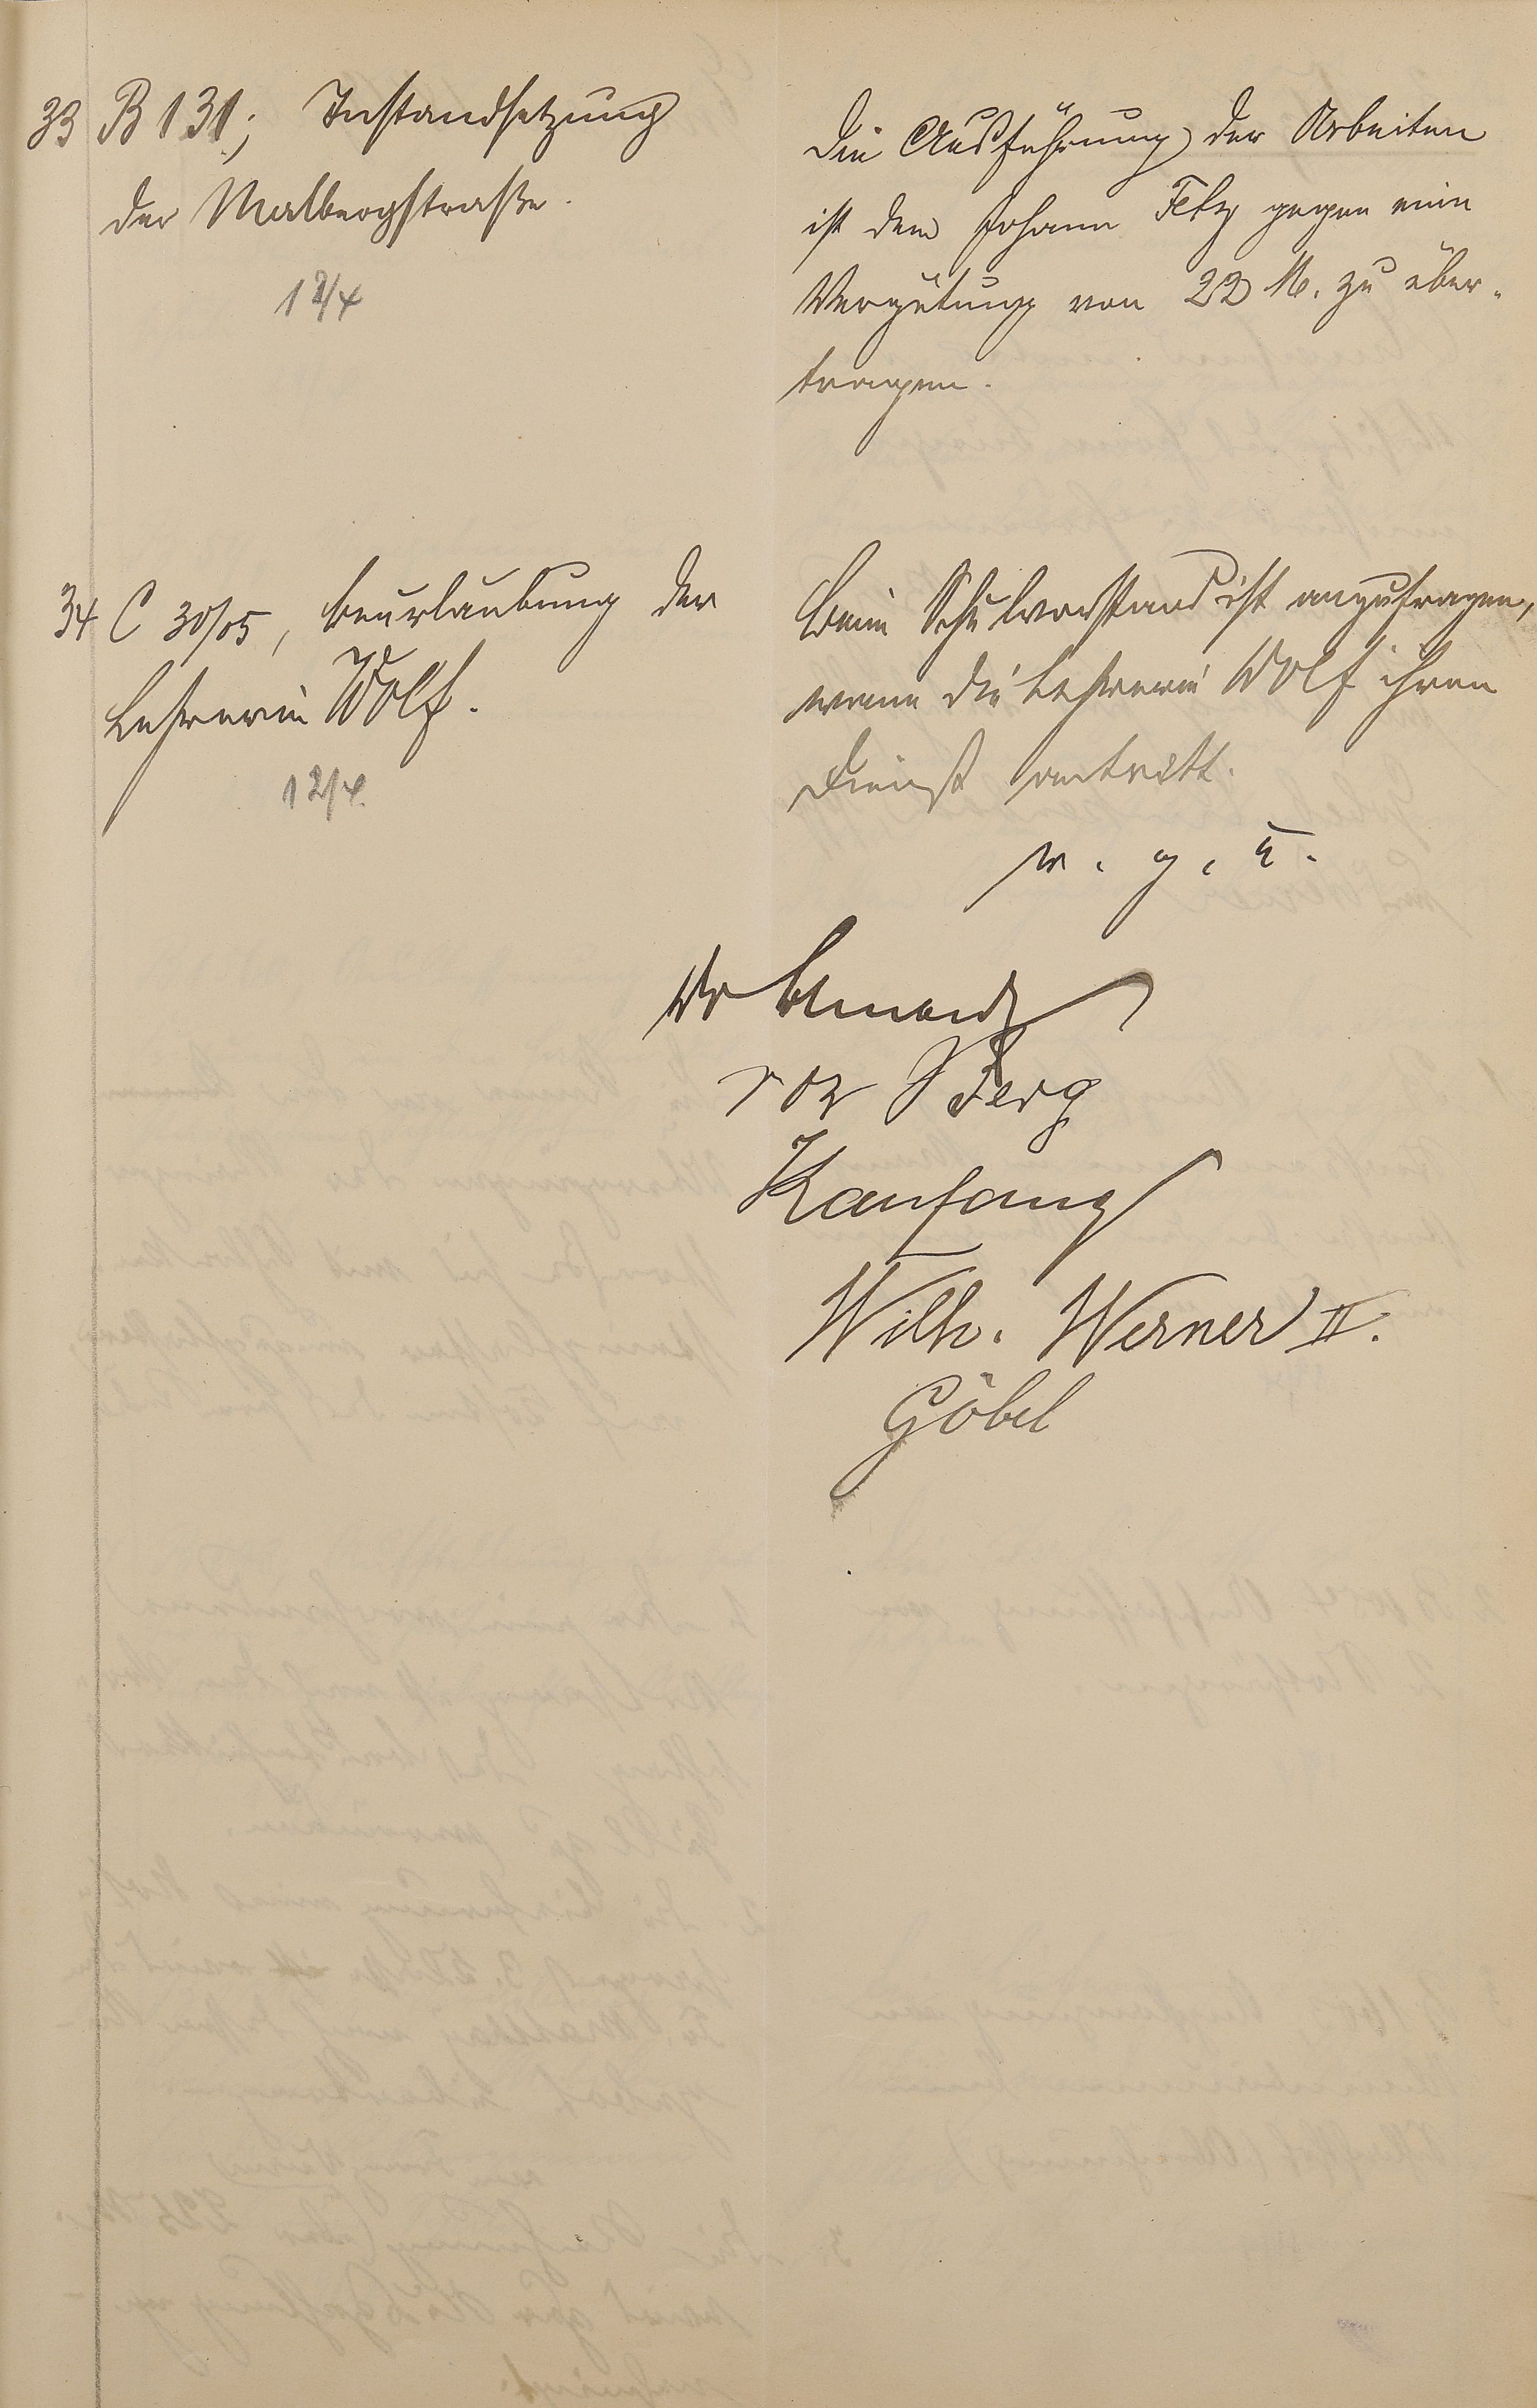 33 B 131; Instandsetzung
der Malbergstraße.
12/4
Die Ausführung der Arbeiten
ist dem Johann Fetz gegen eine
Vergütung von 22 M. zu über-
tragen.
34 C 30/05, Beurlaubung der
Lehrerin Wolf.
12/4.
Beim Schulvorstand ist anzufragen,
wann die Lehrerin Wolf ihren
Dienst antritt.
v. g. u.
Berg
Kanfang
Wilh. Werner II.
Göbel